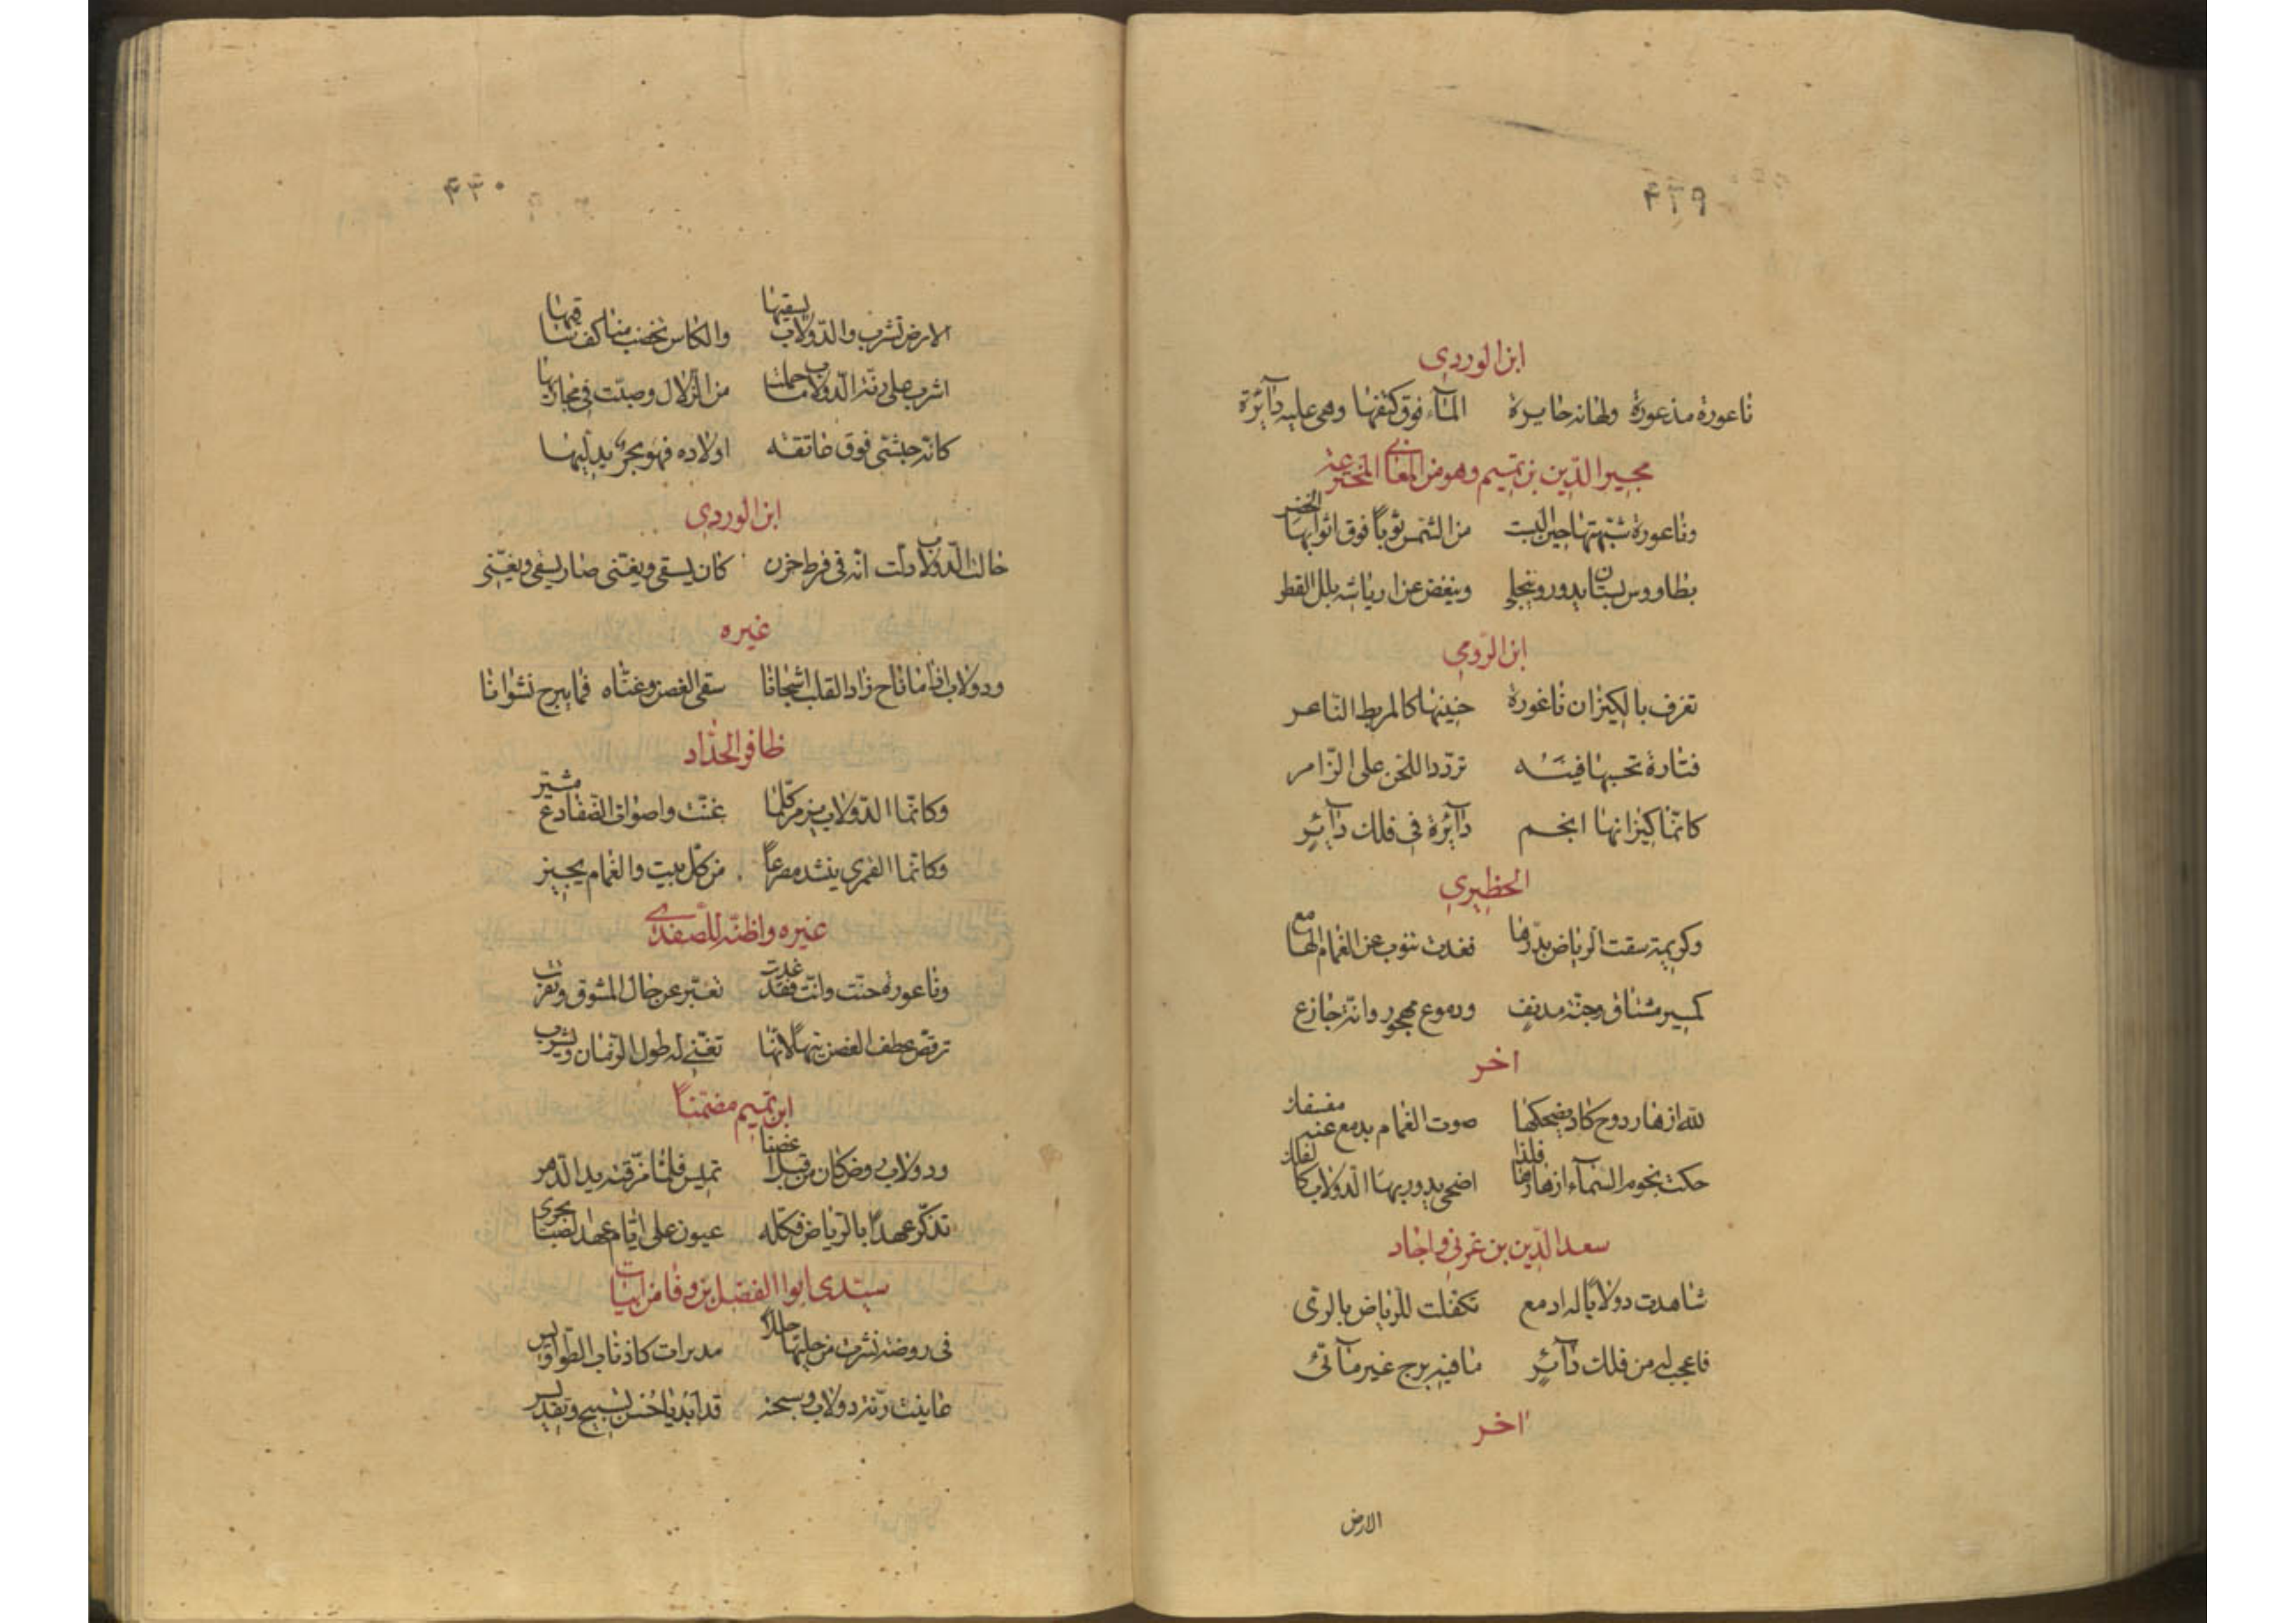 ۴۲۹
ابن الوردي
ناعورة مذعورة ولهانه حايرة الماء فوق كتفها وهي عليه دآئرة
مجير الدين بن تميم وهو من المعاني المخترعة
وناعورة شبهتها حين البست من الشمس ثوباً فوق اثوابها الخضر
بطاووس بستان يدور وينجلي وينفض عن ارياشه بلل القطر
ابن الرومي
تعزف بالكيزان ناغورة حنينها كالمربط الناعر
فتارة تحسبها قينه تردد اللحن على الزامر
كانما كيزانها انجم دآئرة في فلك دآئر
الحظيري
وكريمة سقت الرياض بدرها فغدت تنوب عن الغمام الهامع
كمسير مشتاق وحنة مدنف ودموع مهجور وانة جازع
اخر
لله ازهار دوح كاد يضحكها صوت الغمام بدمع عنه
حكت نجوم السماء ازهارها فلذا اضحى يدور بها الدولاب كالفلك
سعد الدين بن عربي واجاد
شاهدت دولاباً له ادمع تكفلت للرياض بالرى
فاعجب له من فلك دآئر ما فيه برج غير مآئى
اخر
الارض
۴۳۰
الارض تشرب والدولاب يسقيها والكاس تخضب منا كف ساقيها
اشرب على رنة الدولاب ما حملت من الزلال وصبت في مجاريها
كانه حبشي فوق عاتقه اولاده فهو يجري يدليها
ابن الوردي
حالت الدولاب دلت انه في فرط حزن كان يسقي ويغني صار يسقي ويغني
غيره
ودولاب اذا ما ناح زاد القلب اشجانا سقى الغصن وغناه فما يبرح نشوانا
ظافر الحداد
وكانما الدولاب يزمر كلما غنت واصوات الضفادع شيز
وكانما القمري ينشد مصرعاً من كل بيت والغمام يجيز
غيره واظنه للصفدي
وناعورة حنت وانت فقد غدت تعبر عن حال المشوق وتعرب
ترقص عطف الغصن تيهاً لانها تغني له طول الزمان ويشرب
ابن تميم مضمناً
ودولاب روض كان من قبل اغصنا تميس فلما مزقته يد الدهر
تذكر عهداً بالرياض فكله عيون على ايام عهد الصبا تجرى
سيدى ابوا الفضل بن وفا من ابيات
في روضة نشرت من حليها حللاً مدبرات كاذناب الطواويس
عاينت رنة دولاب وسبحته قد ابديا حسن تسبيح وتقديس